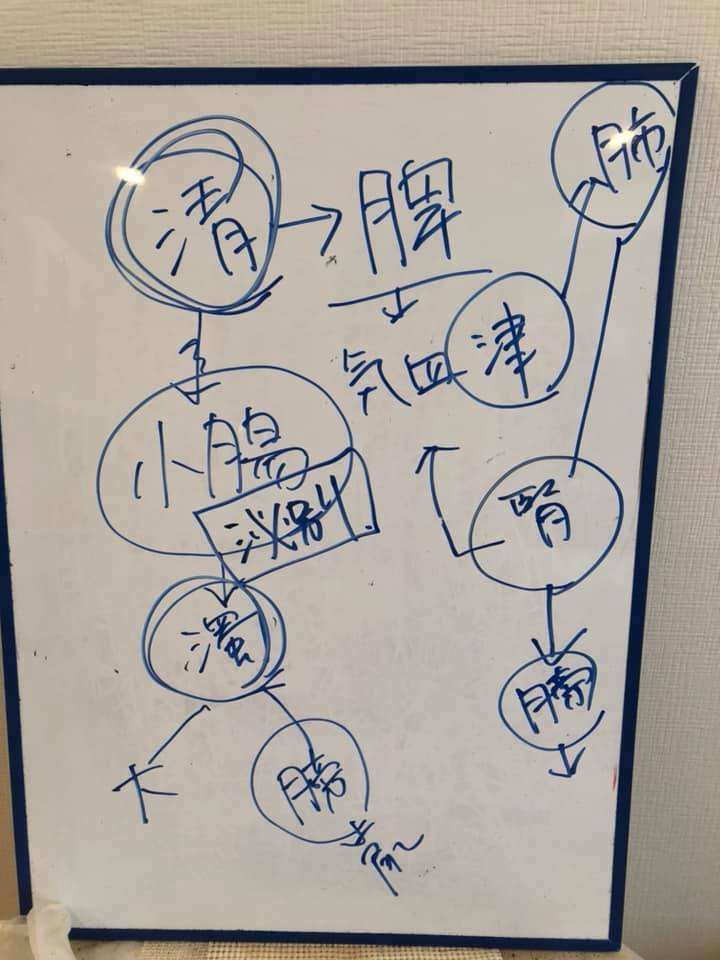 清
脾
肺
気血津
小腸
泌別
腎
濁
膀
大
膀